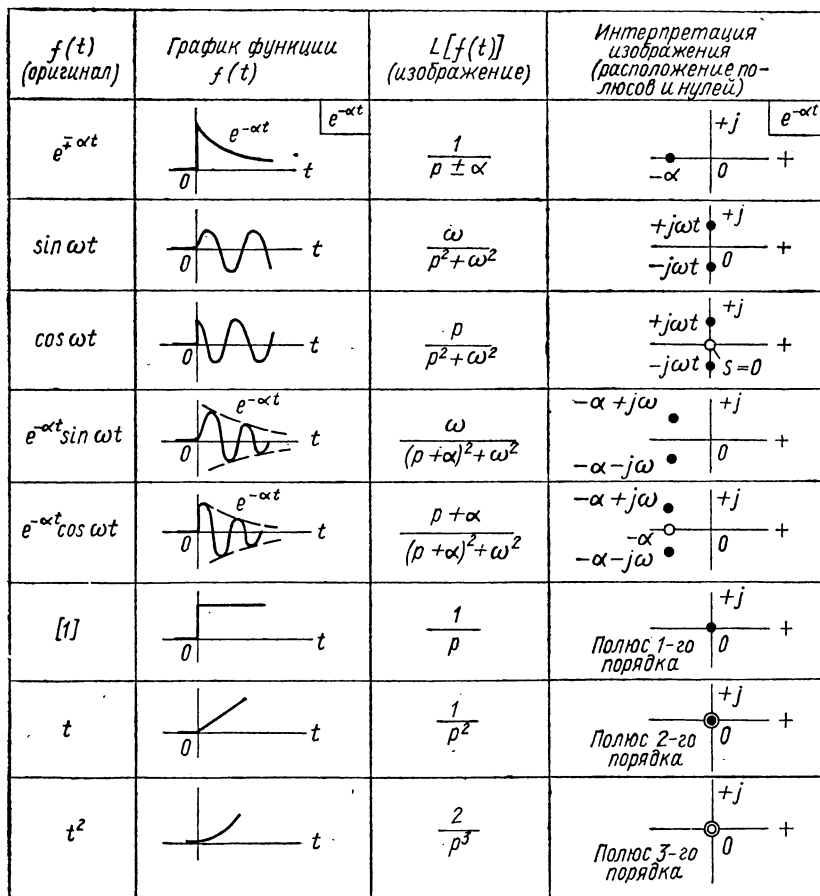 f(t)
(оригинал)
График функции
f(t)
L[f(t)]
(изображение)
Интерпретация
изображения
(расположение по-
люсов и нулей)
e^{∓αt}
e^{-αt}
e^{-αt}
0
t
1
p ± α
e^{-αt}
+j
-α
0
+
sin ωt
0
t
ω
p² + ω²
+jωt
+j
-jωt
0
+
cos ωt
0
t
p
p² + ω²
+jωt
+j
-jωt
S=0
+
e^{-αt} sin ωt
e^{-αt}
0
t
ω
(p + α)² + ω²
-α + jω
+j
-α - jω
0
+
e^{-αt} cos ωt
e^{-αt}
0
t
p + α
(p + α)² + ω²
-α + jω
+j
-α
-α - jω
0
+
[1]
0
t
1
p
+j
0
+
Полюс 1-го
порядка
t
0
t
1
p²
+j
0
+
Полюс 2-го
порядка
t²
t
2
p³
+j
0
+
Полюс 3-го
порядка